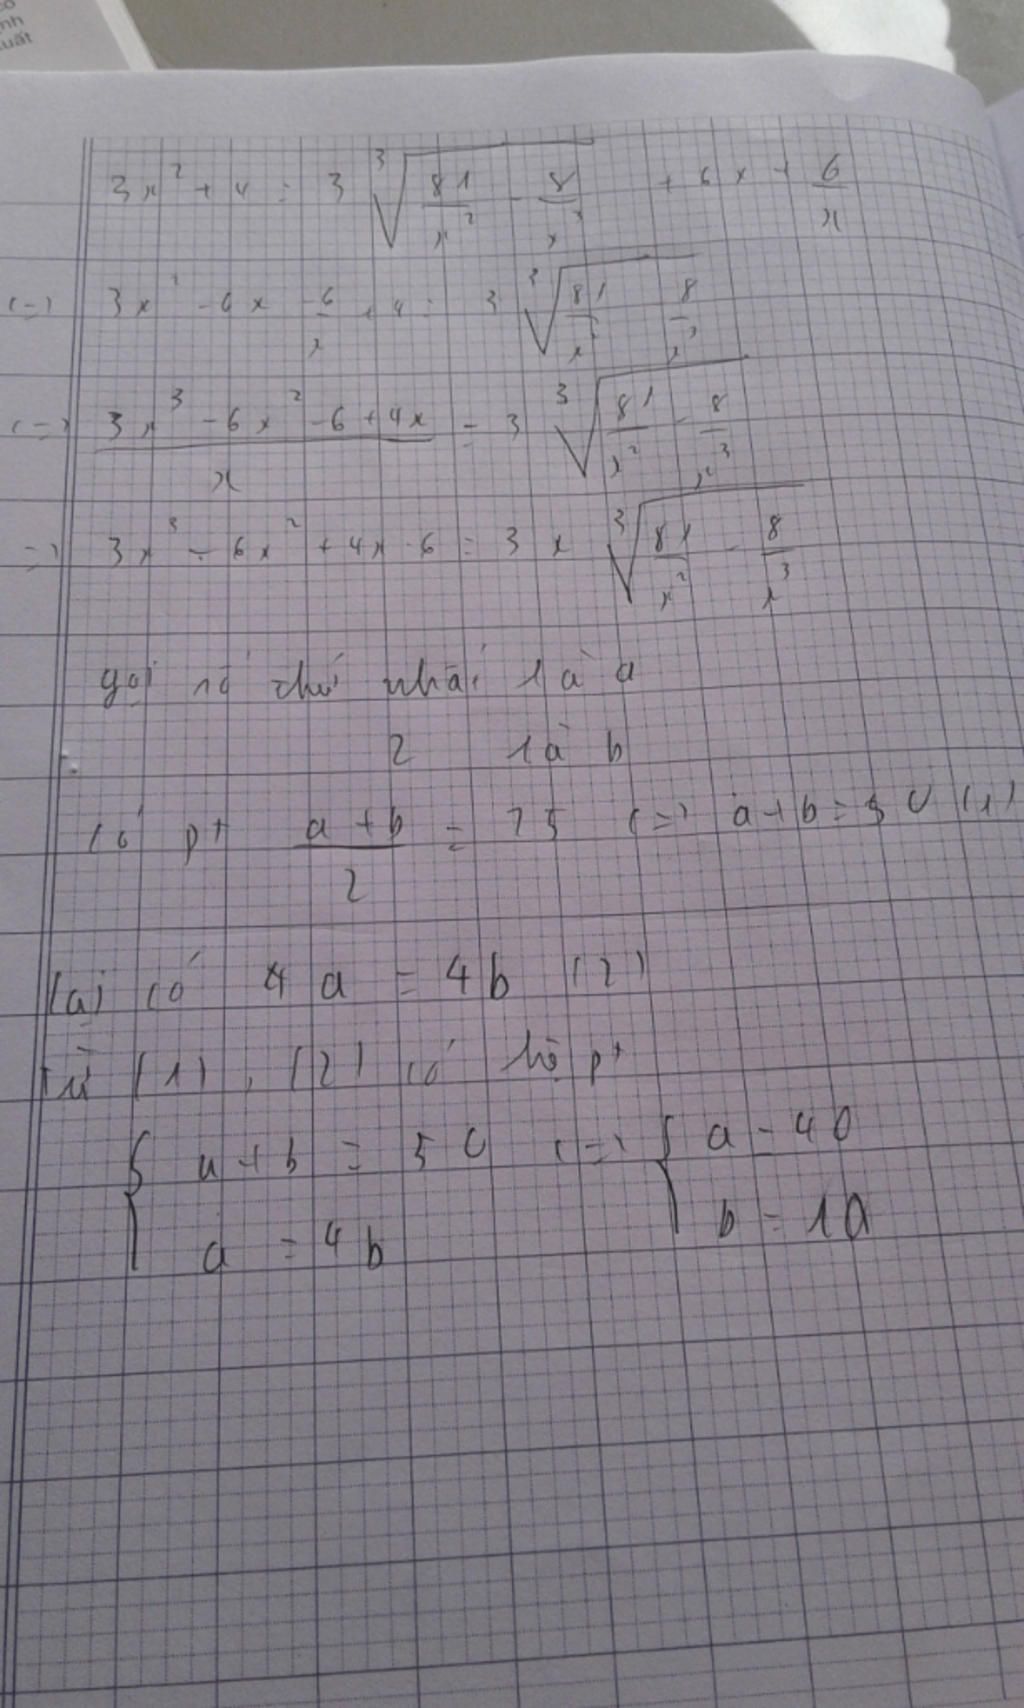 nh
uất
3x² + 4 = 3 ∛(81/x² - 8/x³) + 6x + 6/x
(=) 3x² - 6x - 6/x + 4 = 3 ∛(81/x² - 8/x³)
(=) (3x³ - 6x² - 6 + 4x)/x = 3 ∛(81/x² - 8/x³)
=) 3x³ - 6x² + 4x - 6 = 3x ∛(81/x² - 8/x³)
gọi số thứ nhất là a
2 là b
Có pt (a + b)/2 = 25 (=) a + b = 50 (1)
lại có a = 4b (2)
Từ (1), (2) có hệ pt
{ a + b = 50 (=) { a = 40
a = 4b b = 10